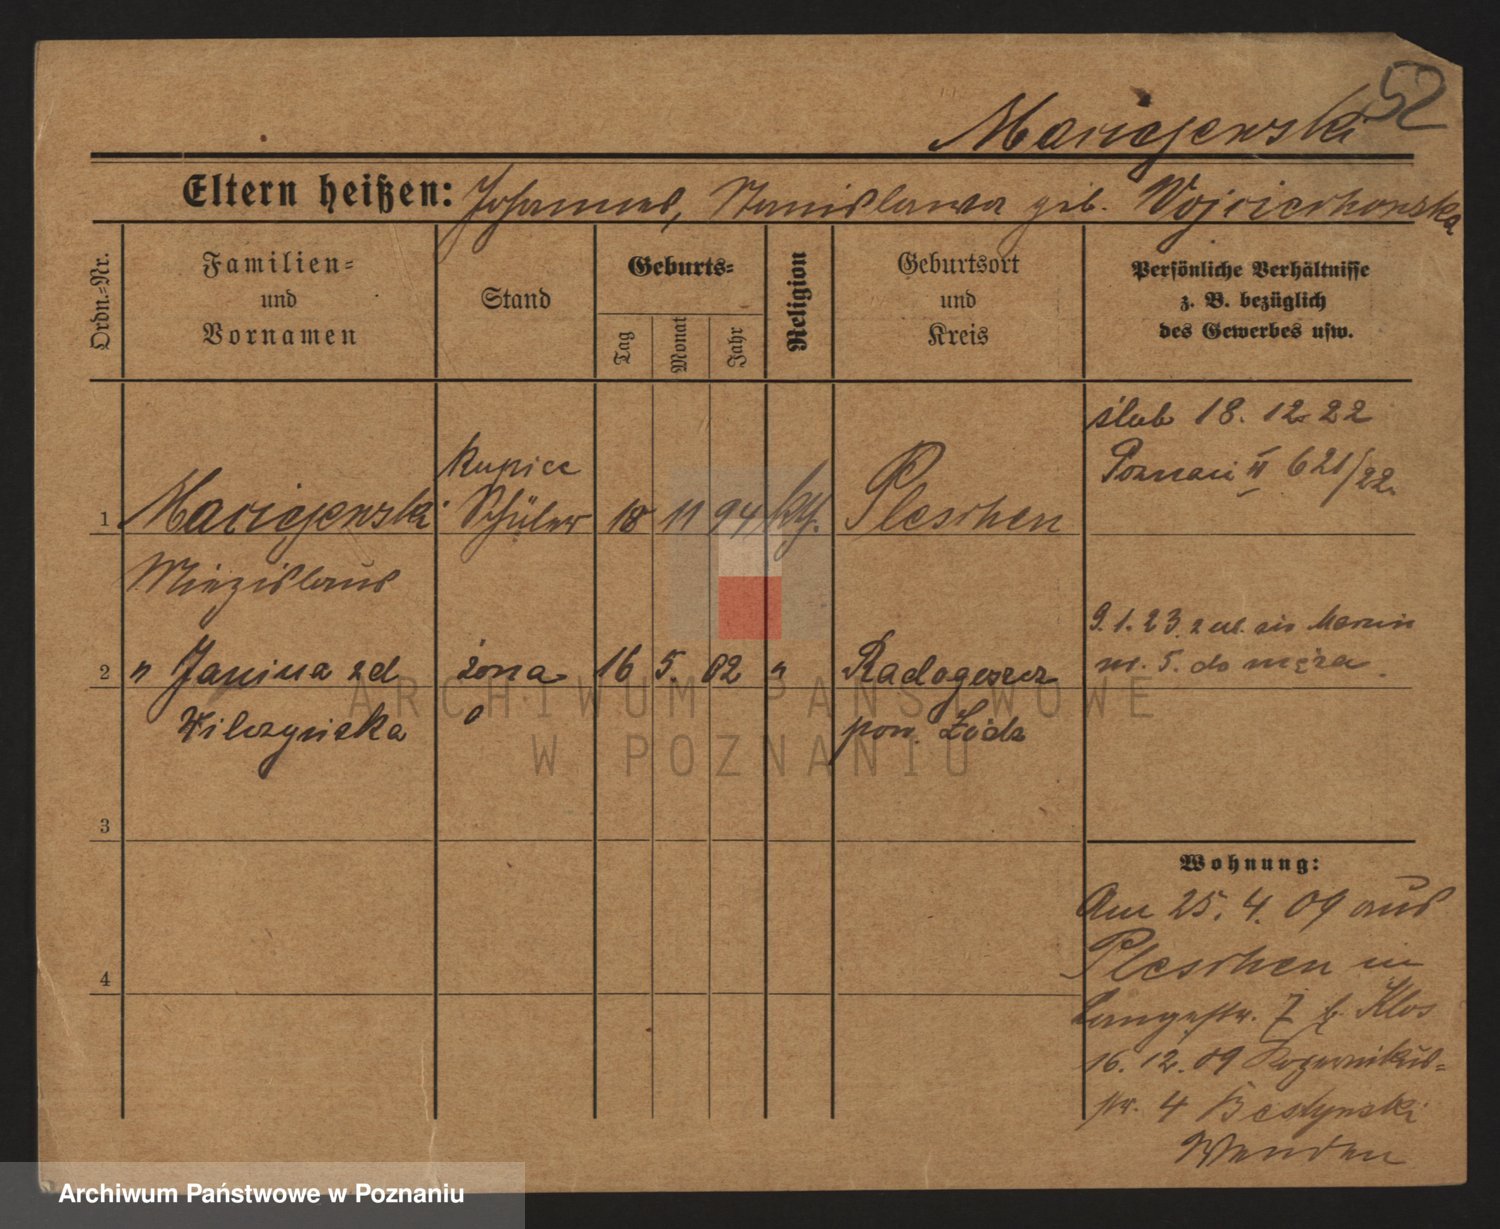 52
Maciejewski
Eltern heißen: Johannes, Stanislawa geb. Wojciechowska
Ordn.-Nr.
Familien-
und
Vornamen
Stand
Geburts-
Tag
Monat
Jahr
Religion
Geburtsort
und
Kreis
Persönliche Verhältnisse
z. B. bezüglich
des Gewerbes usw.
ślub 18. 12 22
Poznań II 621/22.
kupiec
1 Maciejewski Schüler 18 11 94 kth. Pleschen
Miezislaus
9. 1. 23
nr. 5. do męża
2 " Janina zd żona 16 5. 02 " Radogoszcz
Wilczyńska pow. Łódz
3
Wohnung:
Am 25. 4. 09 aus
Pleschen in
4
Langestr. 7 b. Klos
16. 12. 09 Kopernikus-
str. 4
Wenden
ARCHIWUM PAŃSTWOWE
W POZNANIU
Archiwum Państwowe w Poznaniu